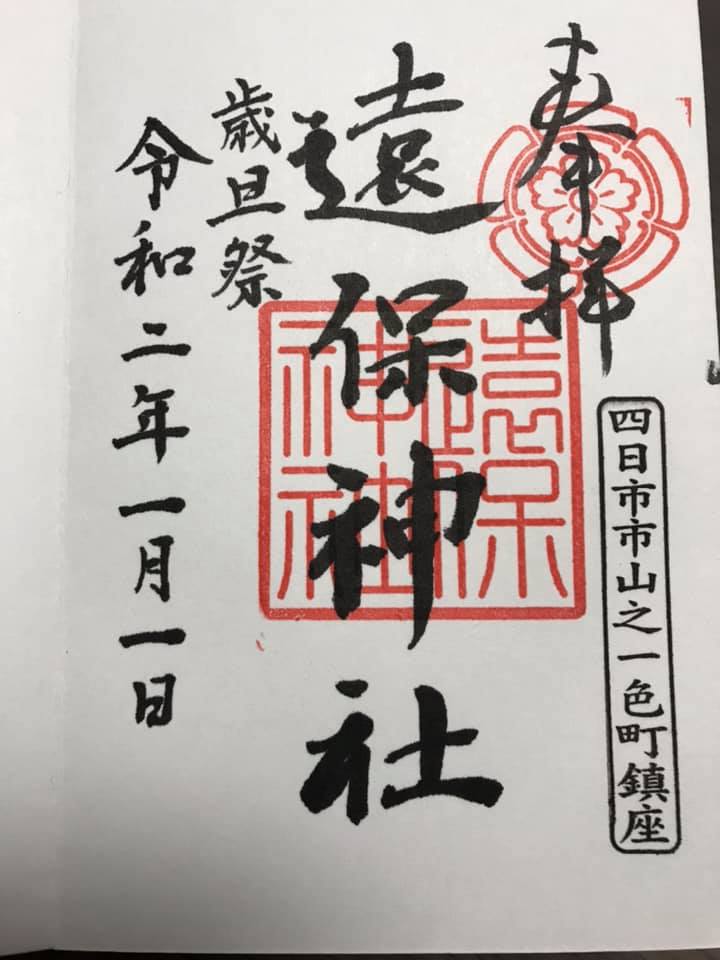 奉拝
四日市市山之一色町鎮座
遠保神社
歳旦祭
令和二年一月一日